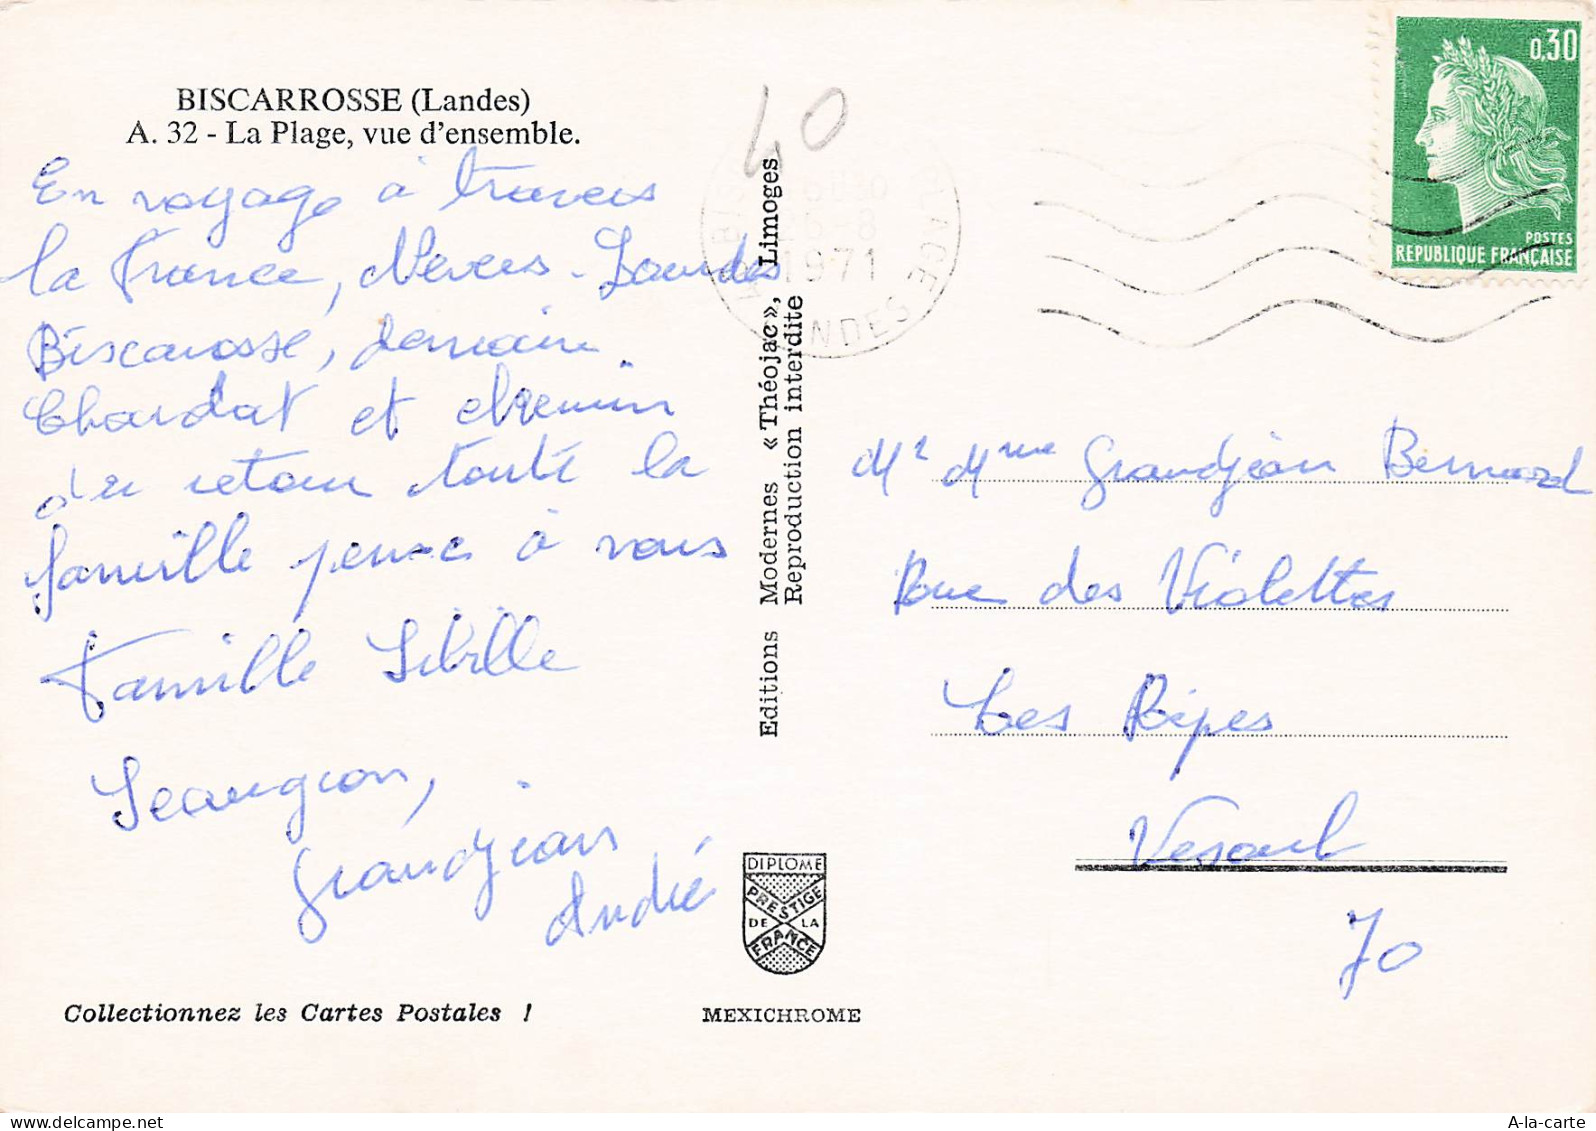 BISCARROSSE (Landes)
A. 32 - La Plage, vue d'ensemble.
En voyage à travers
la France, Nevers - Lourdes
Biscarosse, demain
et chemin
de retour toute la
famille pense à vous
Famille Sibille
Grandjean
André
Collectionnez les Cartes Postales !
40
PLAGE
26-8
1971
LANDES
Editions Modernes « Théojac », Limoges
Reproduction interdite
DIPLOME
PRESTIGE
DE LA
FRANCE
MEXICHROME
0,30
POSTES
REPUBLIQUE FRANÇAISE
Mr Mme Grandjean Bernard
Rue des Violettes
Les Rêpes
Vesoul
70
A-la-carte